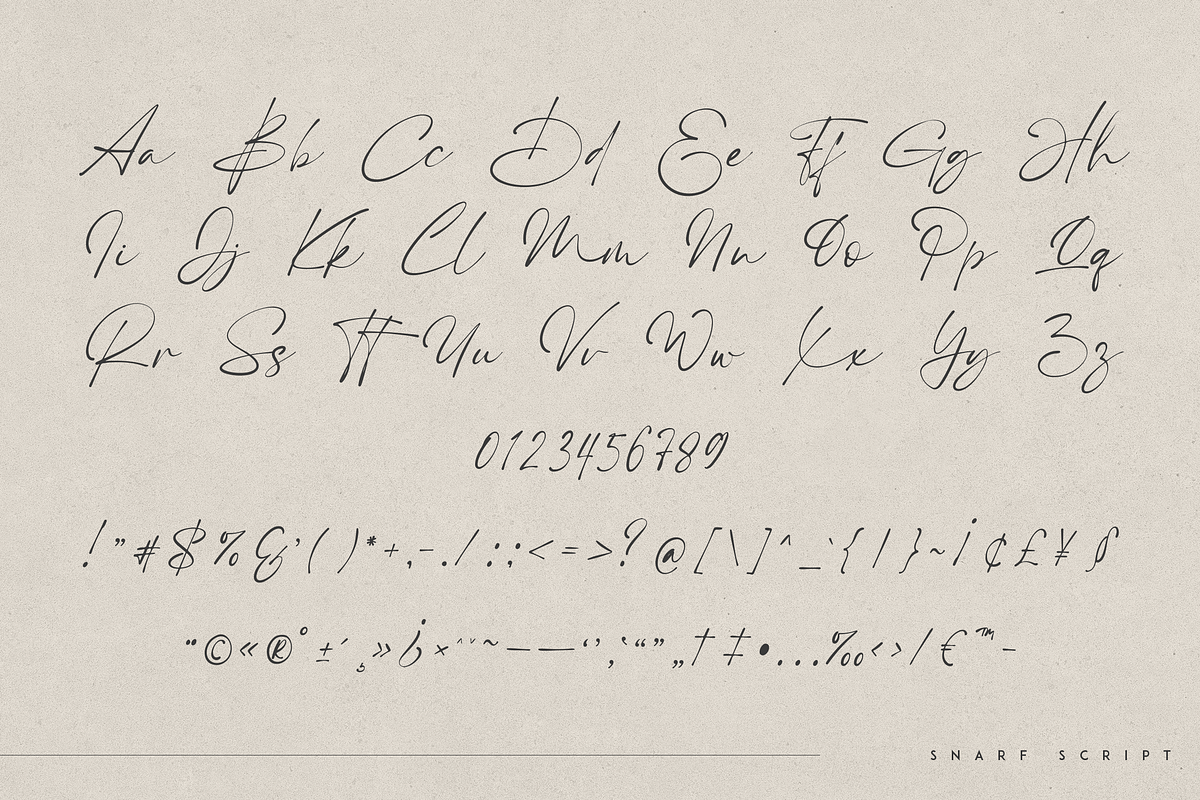 Aa Bb Cc Dd Ee Ff Gg Hh
Ii Jj Kk Ll Mm Nn Oo Pp Qq
Rr Ss Tt Uu Vv Ww Xx Yy Zz
0123456789
! " # $ % & ' ( ) * + , - . / : ; < = > ? @ [ \ ] ^ _ ` { | } ~ ¡ ¢ £ ¥ §
¨ © « ® ° ± ´ ¸ » ¿ × ˆ ˇ ˜ – — ‘ ’ ‚ ‛ “ ” „ † ‡ • … ‰ ‹ › ⁄ € ™ −
SNARF SCRIPT